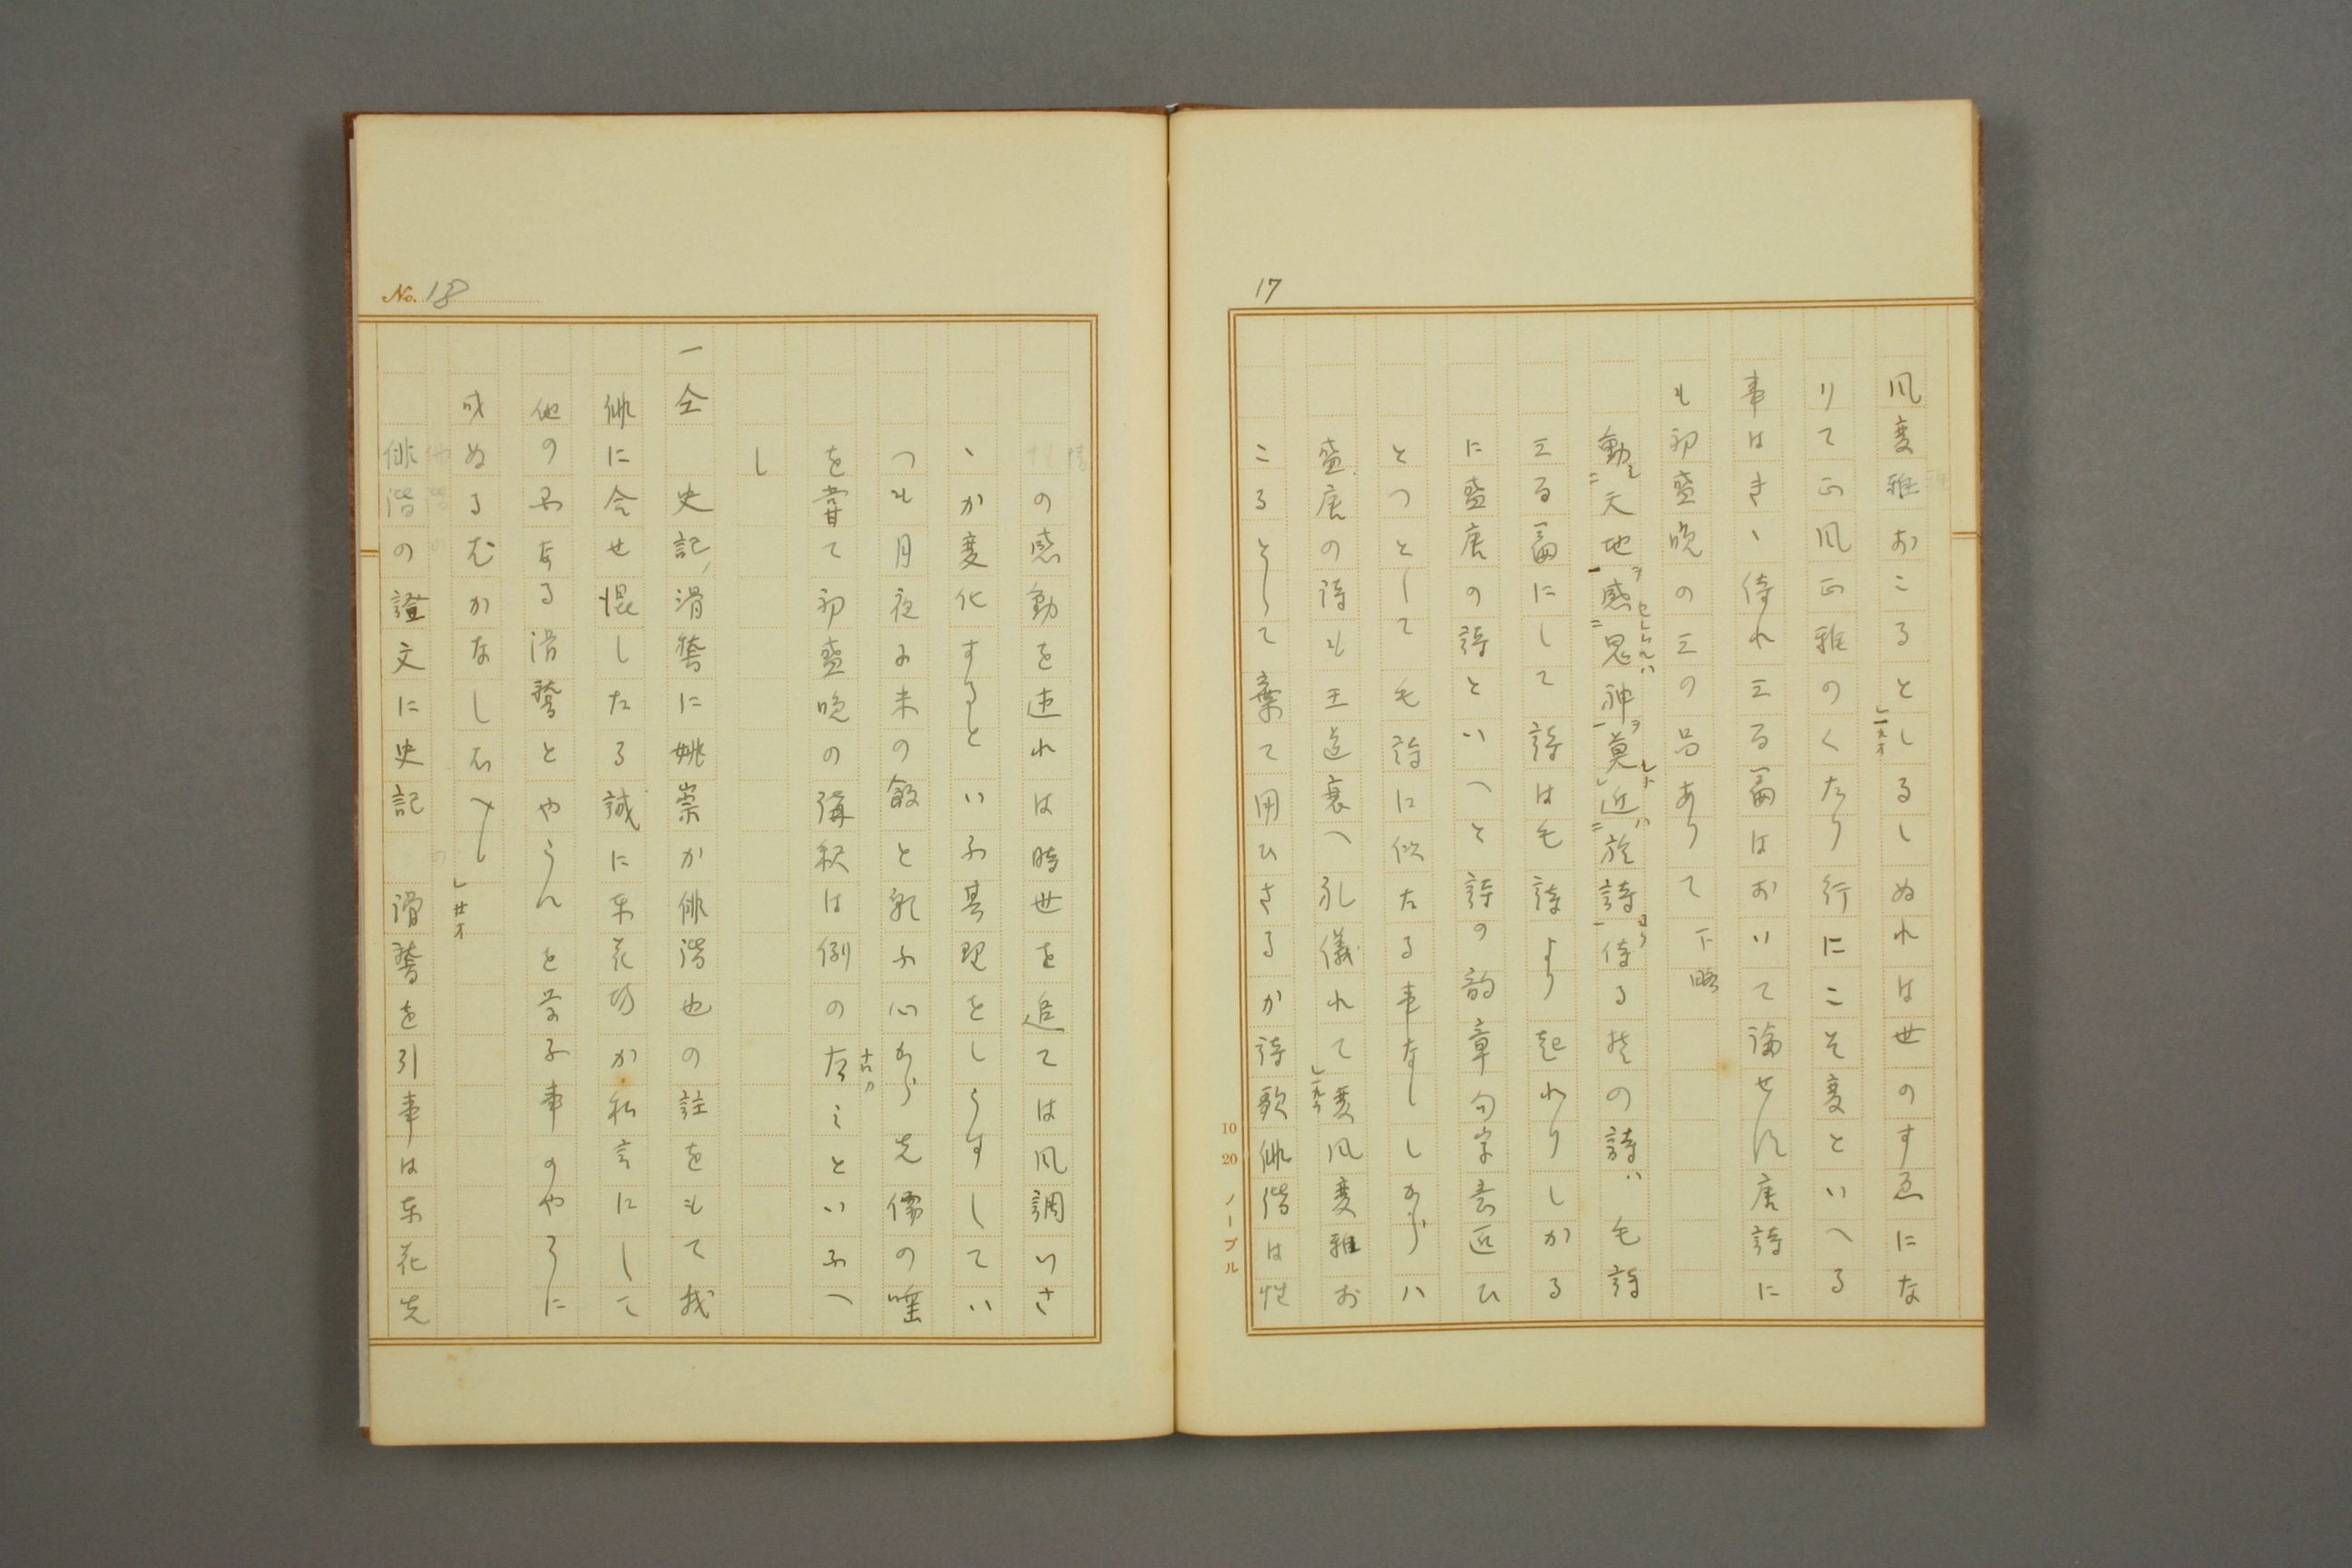 17
風変雅おこるとしるしぬれは世のすゑにな
」一九オ
りて正風正雅のくたり行にこそ変といへる
事はきゝ侍れ三百篇はおいて論せす唐詩に
も初盛晩の三の品ありて 下略
動シ二天地ヲ一感セシムルハ二鬼神ヲ一莫レトハ近二於詩一ヨリ侍る其の詩ハ毛詩
三百篇にして詩は毛詩より起れりしかる
に盛唐の詩といへと詩の韵章句字去近ひ
とつとして毛詩に似たる事なししからハ
盛唐の詩も王道衰へ礼儀れて変風変雅お
」一九ウ
こるとて棄て用ひさるか詩歌俳諧は性
10 20 ノーブル
No. 18
の感動を述れは時世を追ては風調いさ
ゝか変化するといふ其理をしらすしてい
つも月夜に米の飯と乳ふ心から先儒の唾
を嘗て初盛晩の講釈は例の たこといふへ
し
一仝 史記滑稽に姚崇か俳諧也の註をもて我
俳に合せ混したる誠に東花坊か私言にして
他のふある滑稽とやらんを学ふ事のやうに
成ぬるむかなし〳〵
」廿オ
俳諧の證文に史記 滑稽を引事は東花先